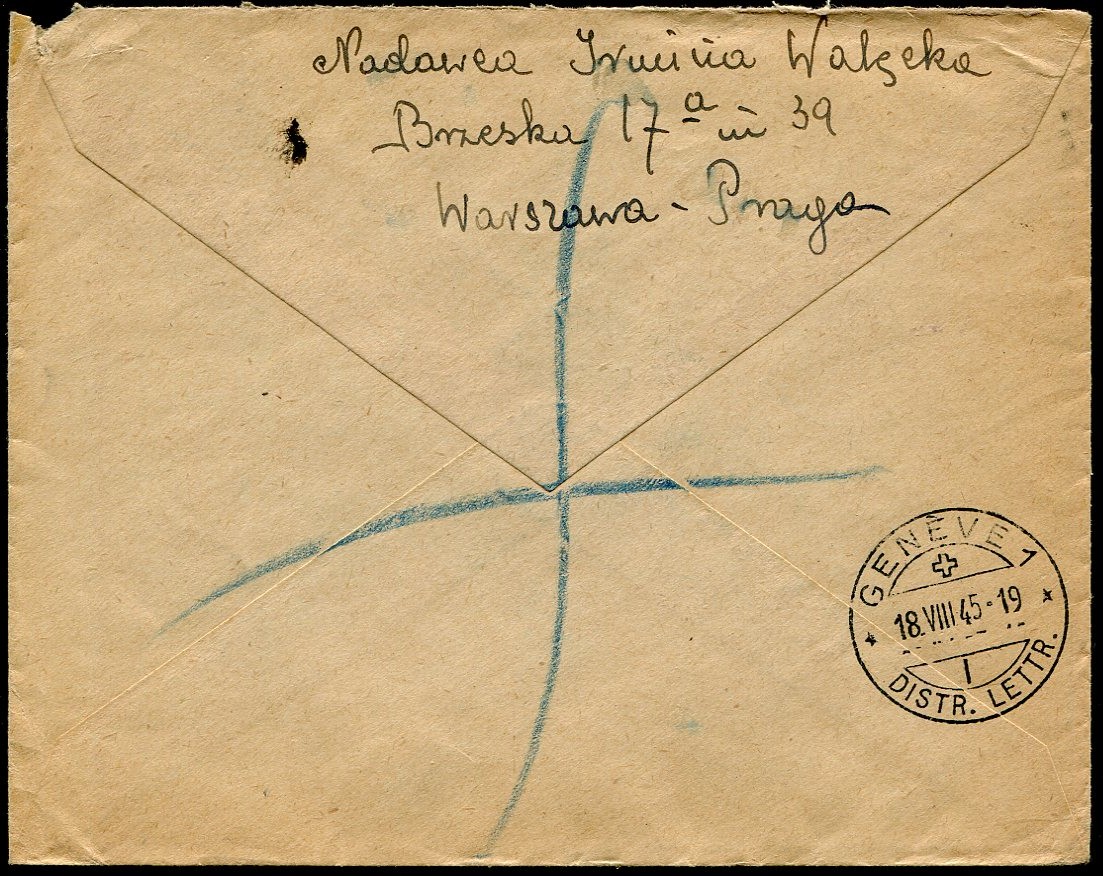 Nadawca Irmina Wałęcka
Brzeska 17 a m 39
Warszawa - Praga
GENÈVE 1
18.VIII 45-19
1
DISTR. LETTR.